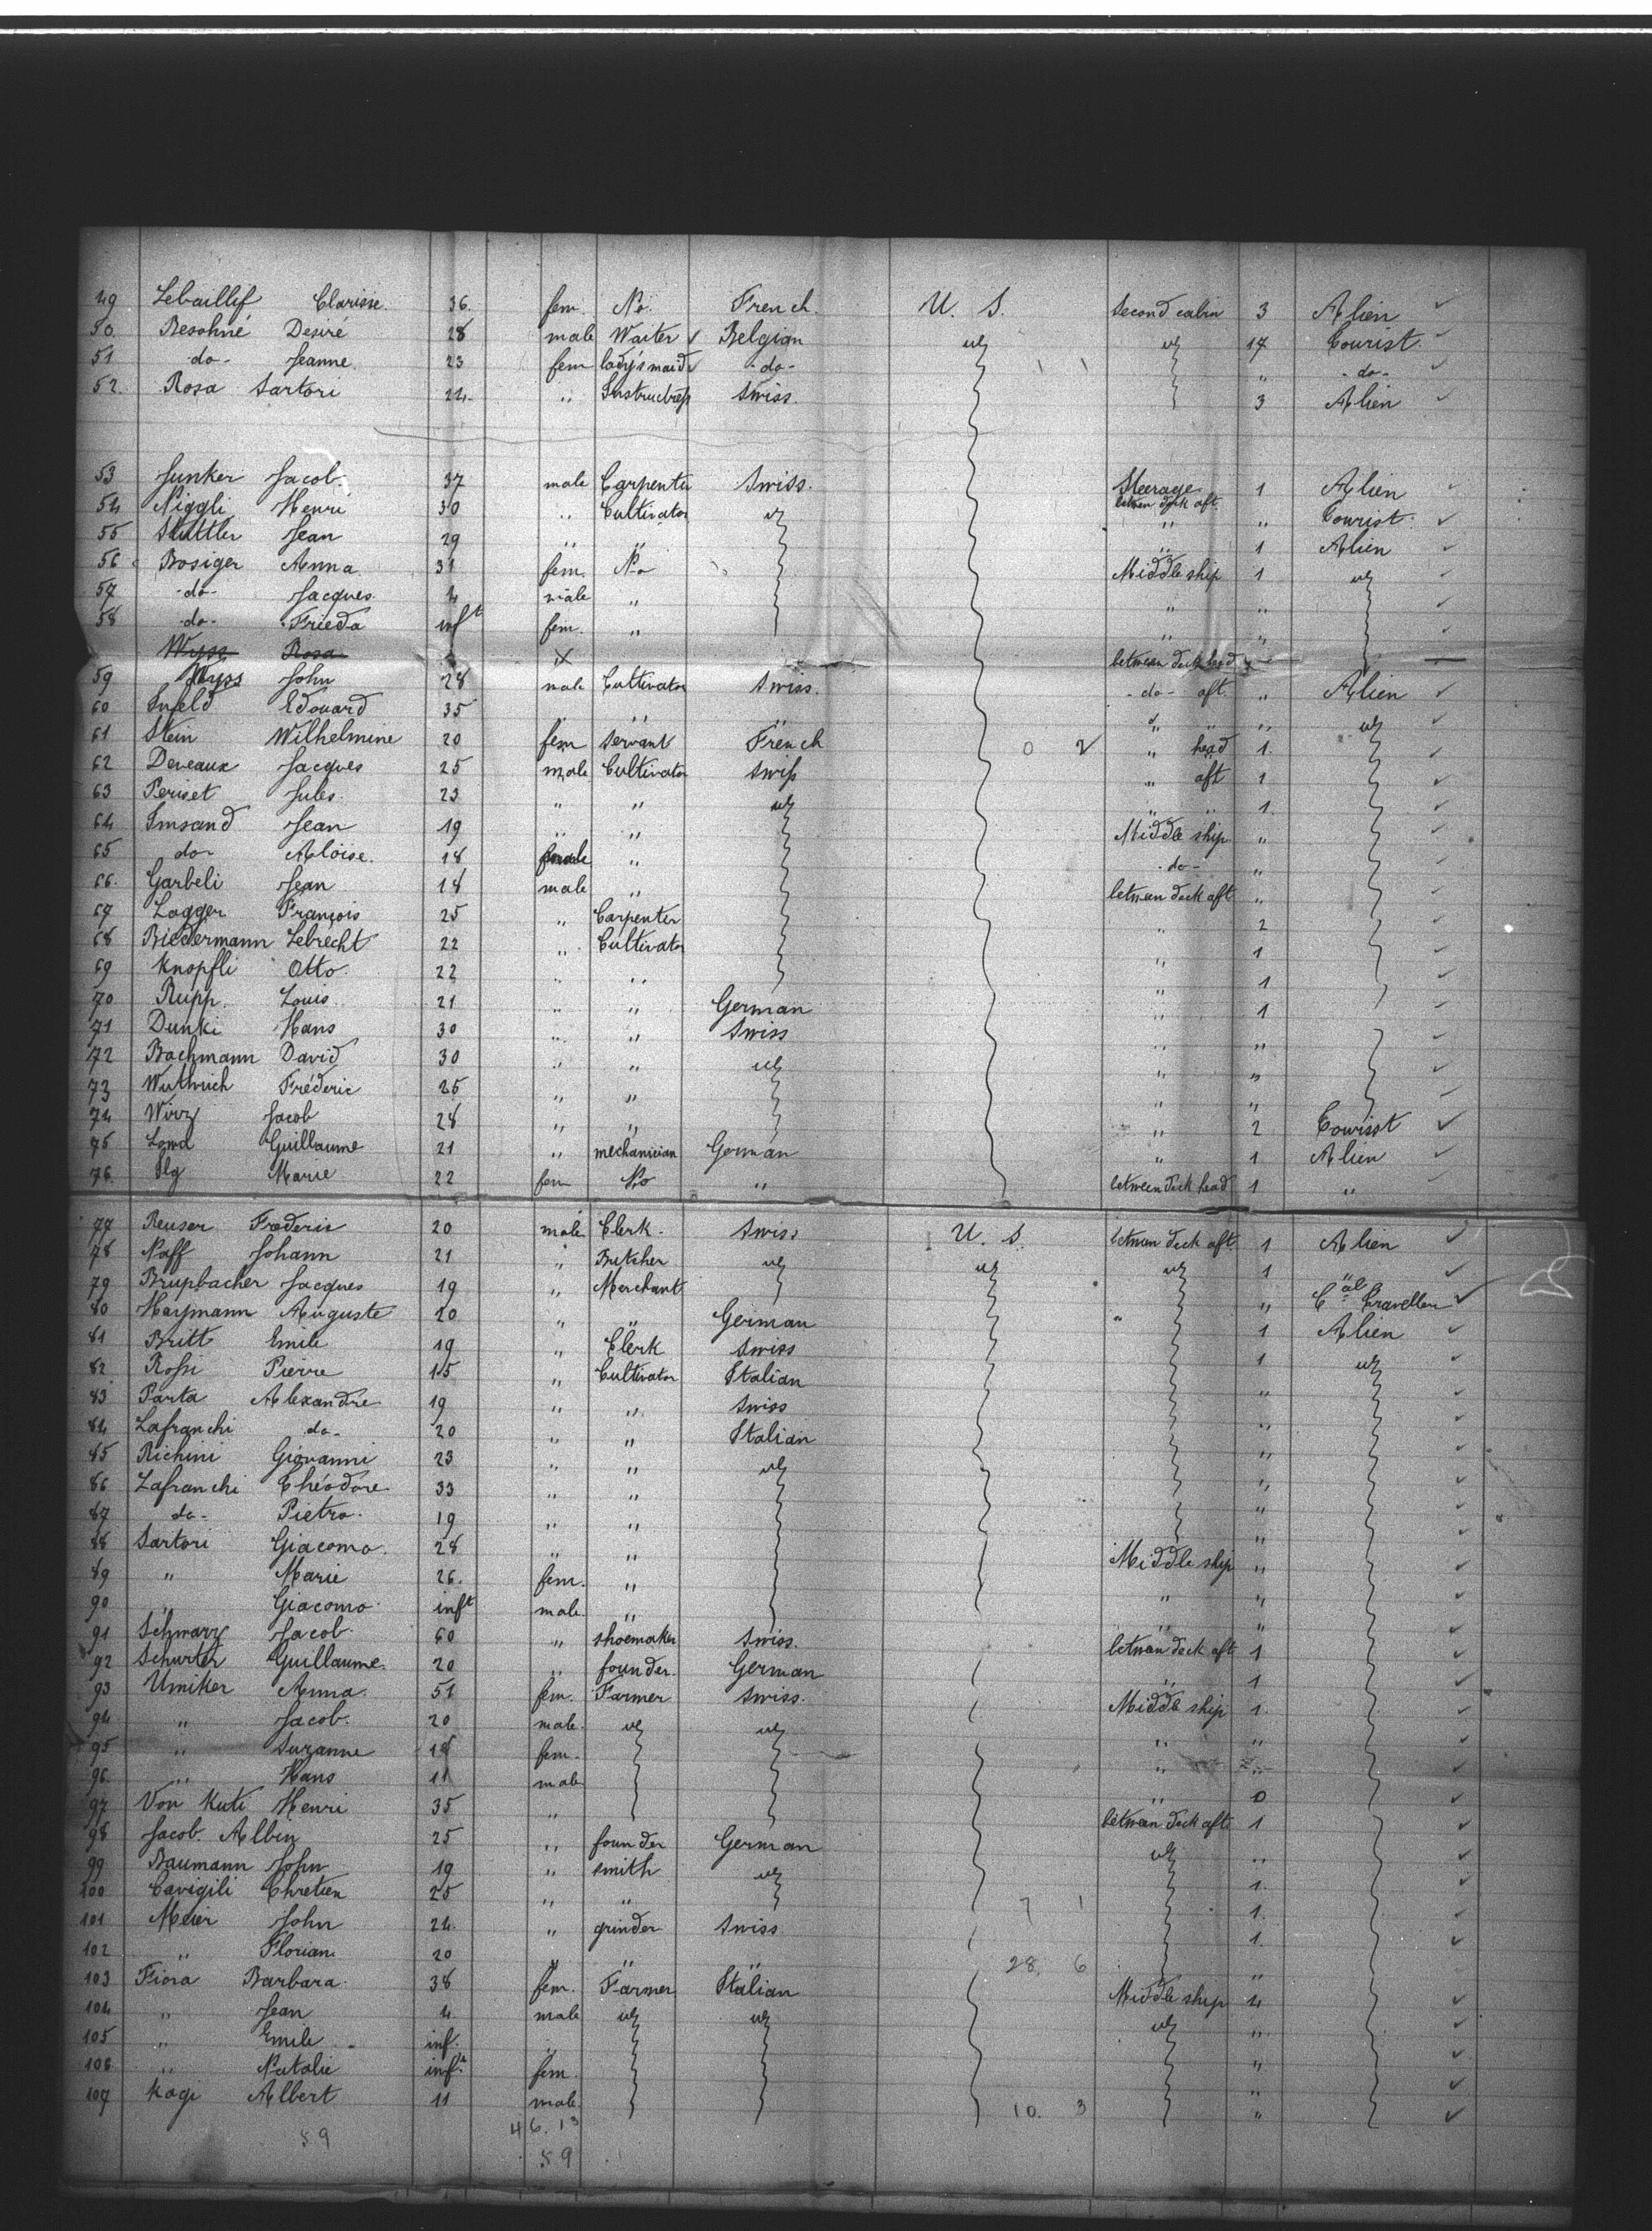 49 Lebaillif Clarisse 36. fem. No. French. U. S. Second cabin 3 Alien ✓
50. Besohné Desiré 28 male Waiter Belgian " " 17 Tourist. ✓
51 -do- Jeanne. 23 fem lady's maid -do- " -do- ✓
52. Rosa Sartori 24. " Instructress Swiss. 3 Alien ✓
53 Junker Jacob. 37 male Carpenter Swiss. Steerage between deck aft. 1 Alien ✓
54 Niggli Henri 30 " Cultivator " " " Tourist. ✓
55 Stuttler Jean 29 " " " 1 Alien ✓
56 Bosiger Anna 31 fem. No Middle ship 1 " ✓
57 -do- Jacques. 4 male " " " ✓
58 -do- Frieda inft fem. " " " ✓
Wyss Rosa X between deck head
59 Wyss John 28 male Cultivator Swiss. -do- aft. " Alien ✓
60 Infeld Edouard 35 " " " " " " " ✓
61 Stein Wilhelmine 20 fem servant French 0 2 " head 1. ✓
62 Deveaux Jacques 25 male Cultivator Swiss " aft 1 ✓
63 Periset Jules. 23 " " " " " 1. ✓
64 Imsand Jean 19 " " Middle ship " ✓
65 do- Aloise. 18 " -do- " ✓
66. Garbeli Jean 18 male " between deck aft " ✓
67 Lagger François 25 " Carpenter " 2 ✓
68 Biedermann Lebrecht 22 " Cultivator " 1 ✓
69 Knopfli Otto 22 " " " 1 ✓
70 Rupp. Louis 21 " " German " 1 ✓
71 Dunki Hans 30 " " Swiss " " ✓
72 Bachmann David 30 " " " " " ✓
73 Wuthrich Fréderic 25 " " " " ✓
74 Wirz Jacob 28 " " " 2 Tourisst ✓
75 Guillaume 21 " mechanician German " 1 Alien ✓
76. Ilg Marie 22 fem No " between deck head 1 " ✓
77 Reuser Frederic 20 male Clerk. Swiss U. S. between deck aft. 1 Alien ✓
78 Naff Johann 21 " Butcher " " " 1 ✓
79 Brupbacher Jacques 19 " Merchant " Cal Traveller ✓
80 Haymann Auguste 20 " " German 1 Alien ✓
81 Britt Emile 19 " Clerk Swiss 1 " ✓
82 Rossi Pierre 15 " Cultivator Italian " ✓
83 Parta Alexandre 19 " " Swiss " ✓
84 Lafranchi do- 20 " " Italian " ✓
85 Richini Giovanni 23 " " " " ✓
86 Lafranchi Théodore 33 " " " ✓
87 do- Pietro. 19 " " " ✓
88 Sartori Giacomo. 28 " " Middle ship " ✓
89 " Marie 26. fem. " " " ✓
90 " Giacomo inft male. " " " ✓
91 Schwarz Jacob. 60 " shoemaker Swiss. between deck aft 1 ✓
92 Schurter Guillaume. 20 " founder. German " 1 ✓
93 Umiker Anna. 51 fem. Farmer Swiss. Middle ship 1. ✓
94 " Jacob. 20 male. " " " " ✓
95 " Suzanne 18 fem. " " ✓
96. " Hans 11 male " 0 ✓
97 Von Kuti Henri 35 " between deck aft. 1 ✓
98 Jacob. Albin 25 " founder German " " ✓
99 Baumann John 19 " smith " 1. ✓
100 Cavigili Chretien 25 " " 7 1 1. ✓
101 Meier John 24. " grinder Swiss 1. ✓
102 " Florian 20 " " " 28. 6 "
103 Fiora Barbara. 38 fem. Farmer Italian Middle ship 4 ✓
104 " Jean 4. male " " " " ✓
105 " Emile inf. " " ✓
106 " Natalie inft. fem. " ✓
107 Kagi Albert 11 male. 10. 3 " ✓
46. 13
59
59